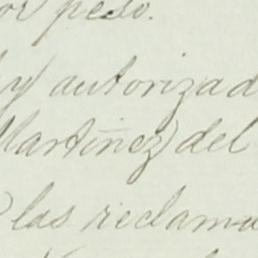 or peso.
y autorizad
Martínez del
las reclama